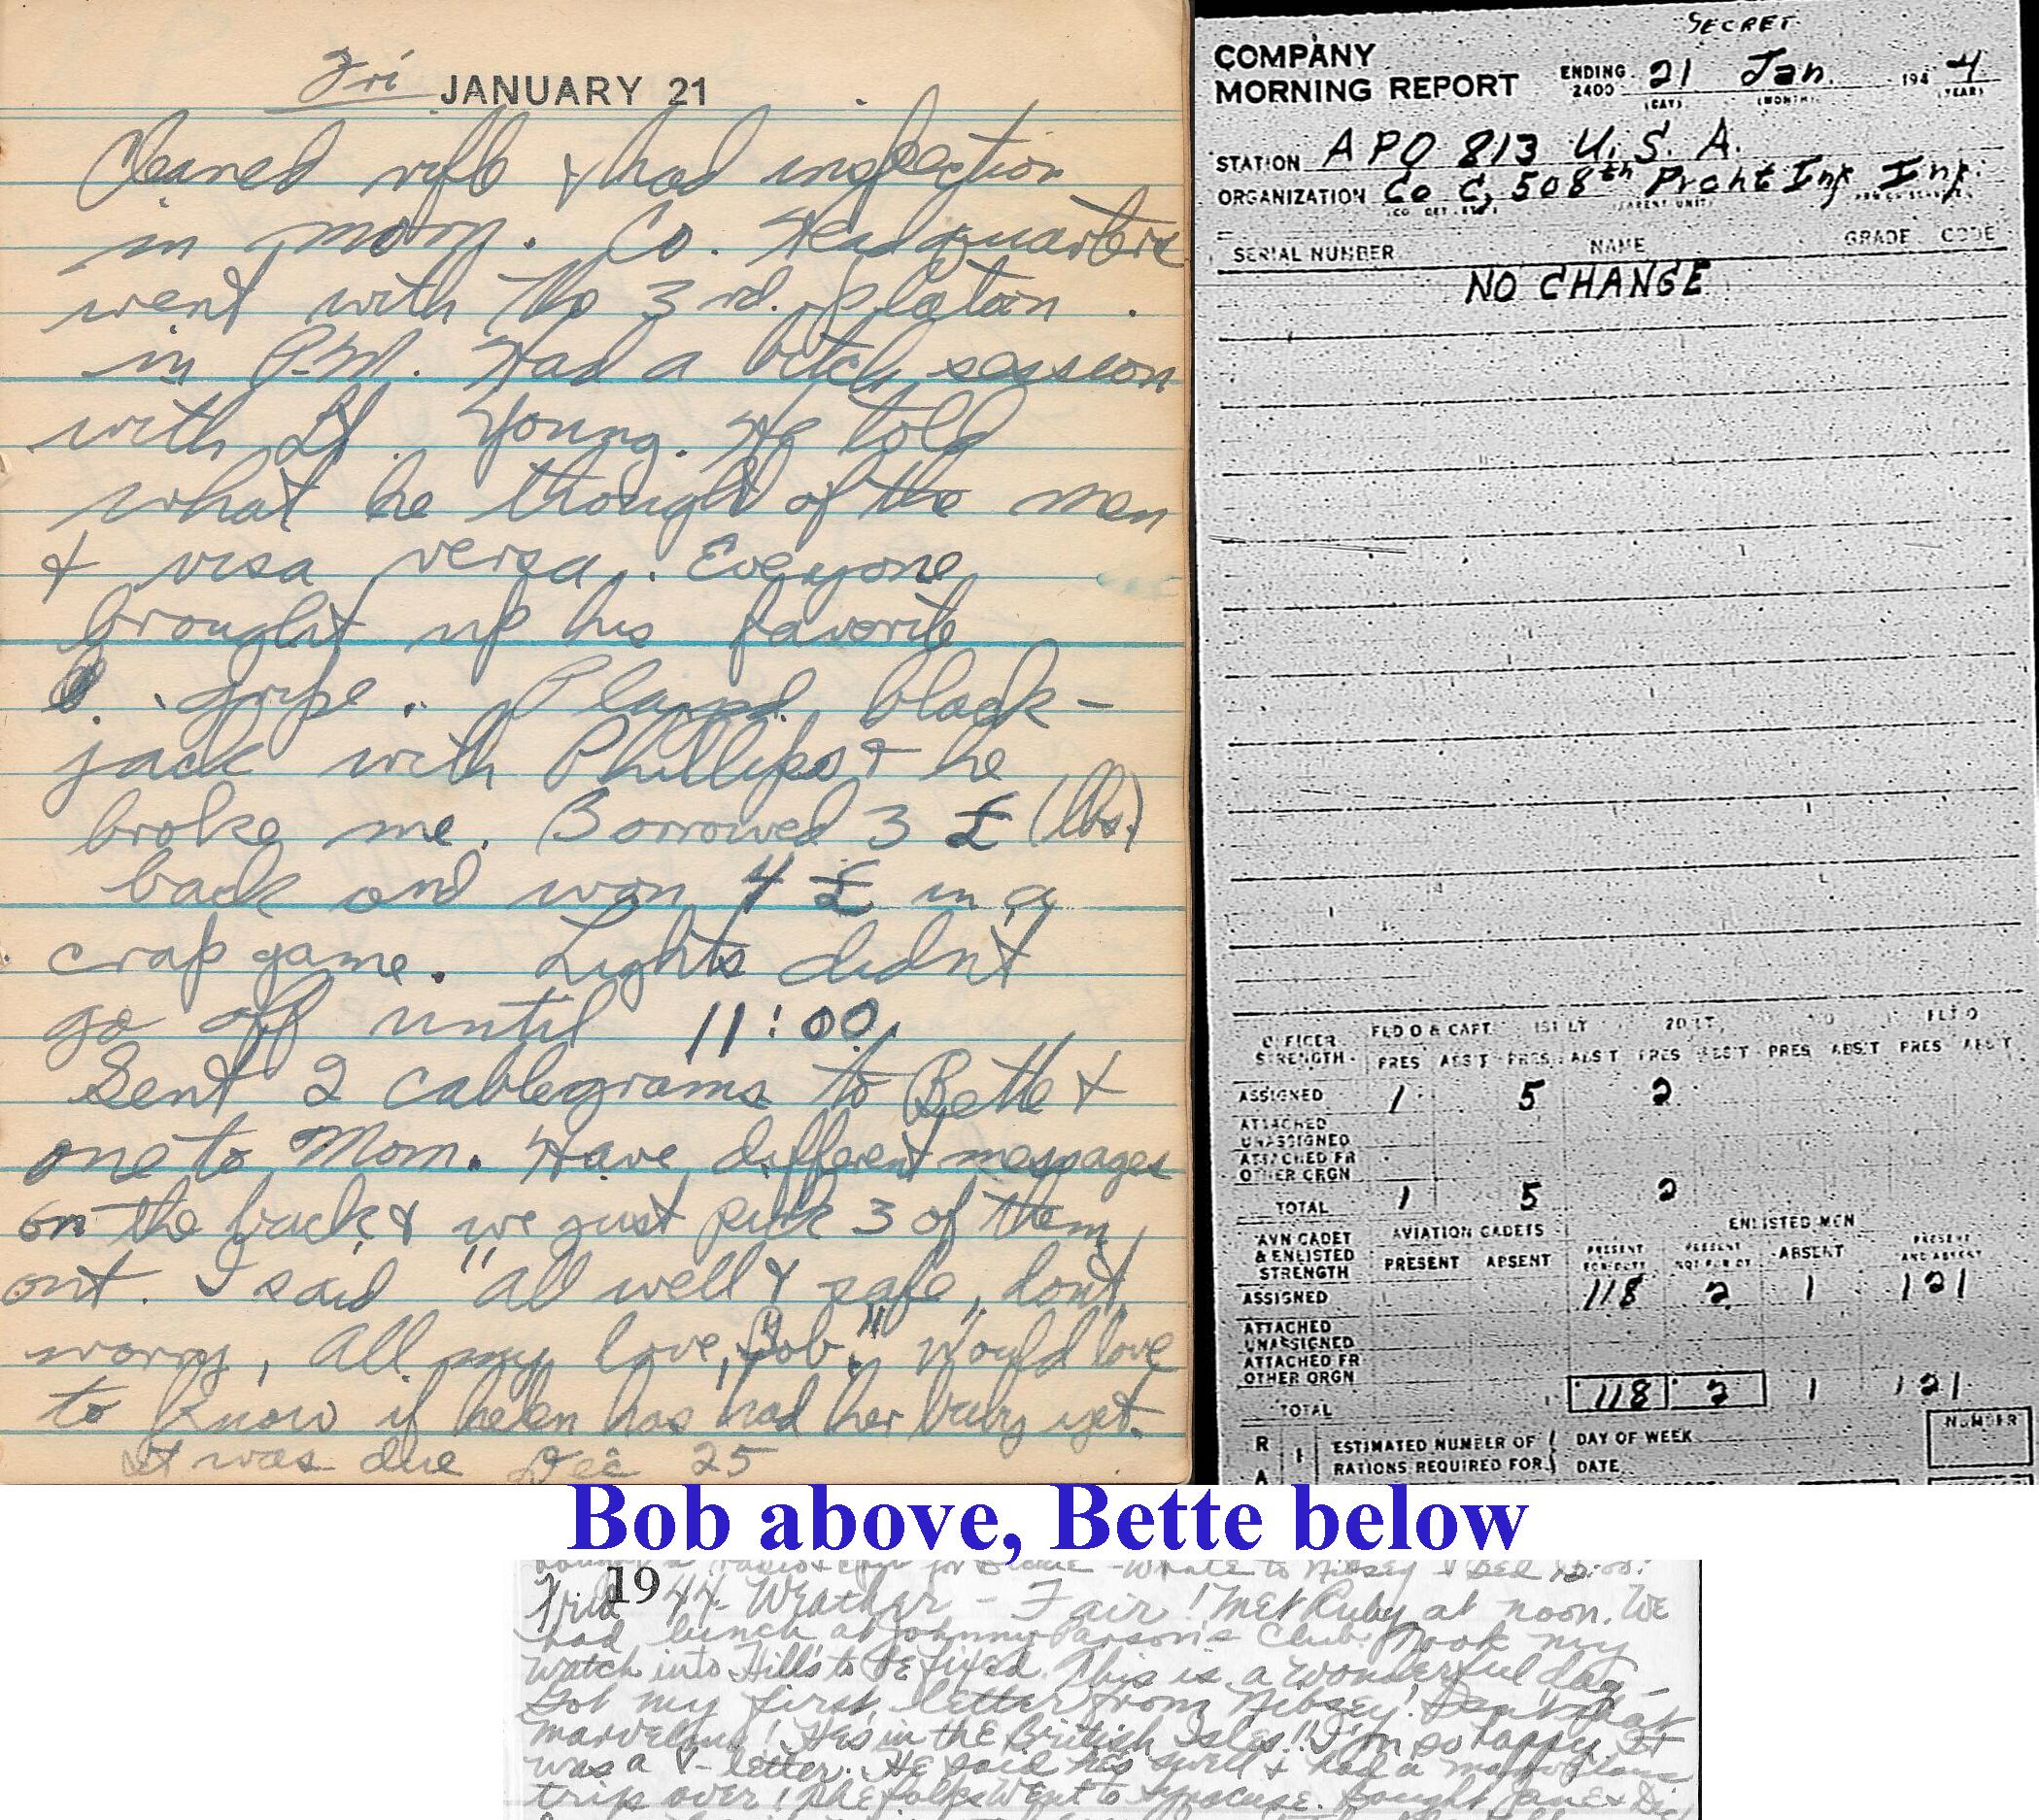 Fri JANUARY 21
Cleaned rifle & had inspection
in morn. Co. Headquarters
went with the 3rd. platoon.
in P.M. Had a bitch session
with Lt. Young. He told
what he thought of the men
& visa versa. Everyone
brought up his favorite
gripe. Played black-
jack with Phillips & he
broke me. Borrowed 3 £ (lbs.)
back and won 4 £ in a
crap game. Lights didn't
go off until 11:00.
Sent 2 cablegrams to Bette &
one to Mom. Have different messages
on the back & we just pick 3 of them
out. I said "All well & safe, dont
worry, All my love, Bob." Would love
to know if helen has had her baby yet.
It was due Dec 25
SECRET
COMPANY
MORNING REPORT
ENDING 2400 21 Jan. 1944
(DAY) (MONTH) (YEAR)
STATION APO 813 U.S.A.
ORGANIZATION Co C, 508th Prcht Inf Inf.
SERIAL NUMBER NAME GRADE CODE
NO CHANGE
OFFICER STRENGTH
FLD O & CAPT 1ST LT 2D LT FLT O
PRES ABS'T PRES ABS'T PRES ABS'T PRES ABS'T PRES ABS'T
ASSIGNED 1 5 2
ATTACHED
UNASSIGNED
ATTACHED FR
OTHER ORGN
TOTAL 1 5 2
AVN CADET
& ENLISTED
STRENGTH
AVIATION CADETS ENLISTED MEN
PRESENT ABSENT PRESENT FOR DUTY PRESENT NOT FOR DY ABSENT PRESENT AND ABSENT
ASSIGNED 118 2 1 121
ATTACHED
UNASSIGNED
ATTACHED FR
OTHER ORGN
TOTAL 118 2 1 121
R A
1
ESTIMATED NUMBER OF
RATIONS REQUIRED FOR
DAY OF WEEK
DATE
NUMBER
Bob above, Bette below
radio for - Wrote to Nibsey & Bed 12:00.
1944 - Weather - Fair! Met Ruby at noon. We
had lunch at Johnny Parson's Club. Took my
watch into Hill's to be fixed. This is a wonderful day -
Got my first letter from Nibsey! Isn't that
marvelous! He's in the British Isles!! I'm so happy. It
was a V-letter. He said he's swell & had a marvelous
trip over! The folks went to Syracuse. Bought Jane &